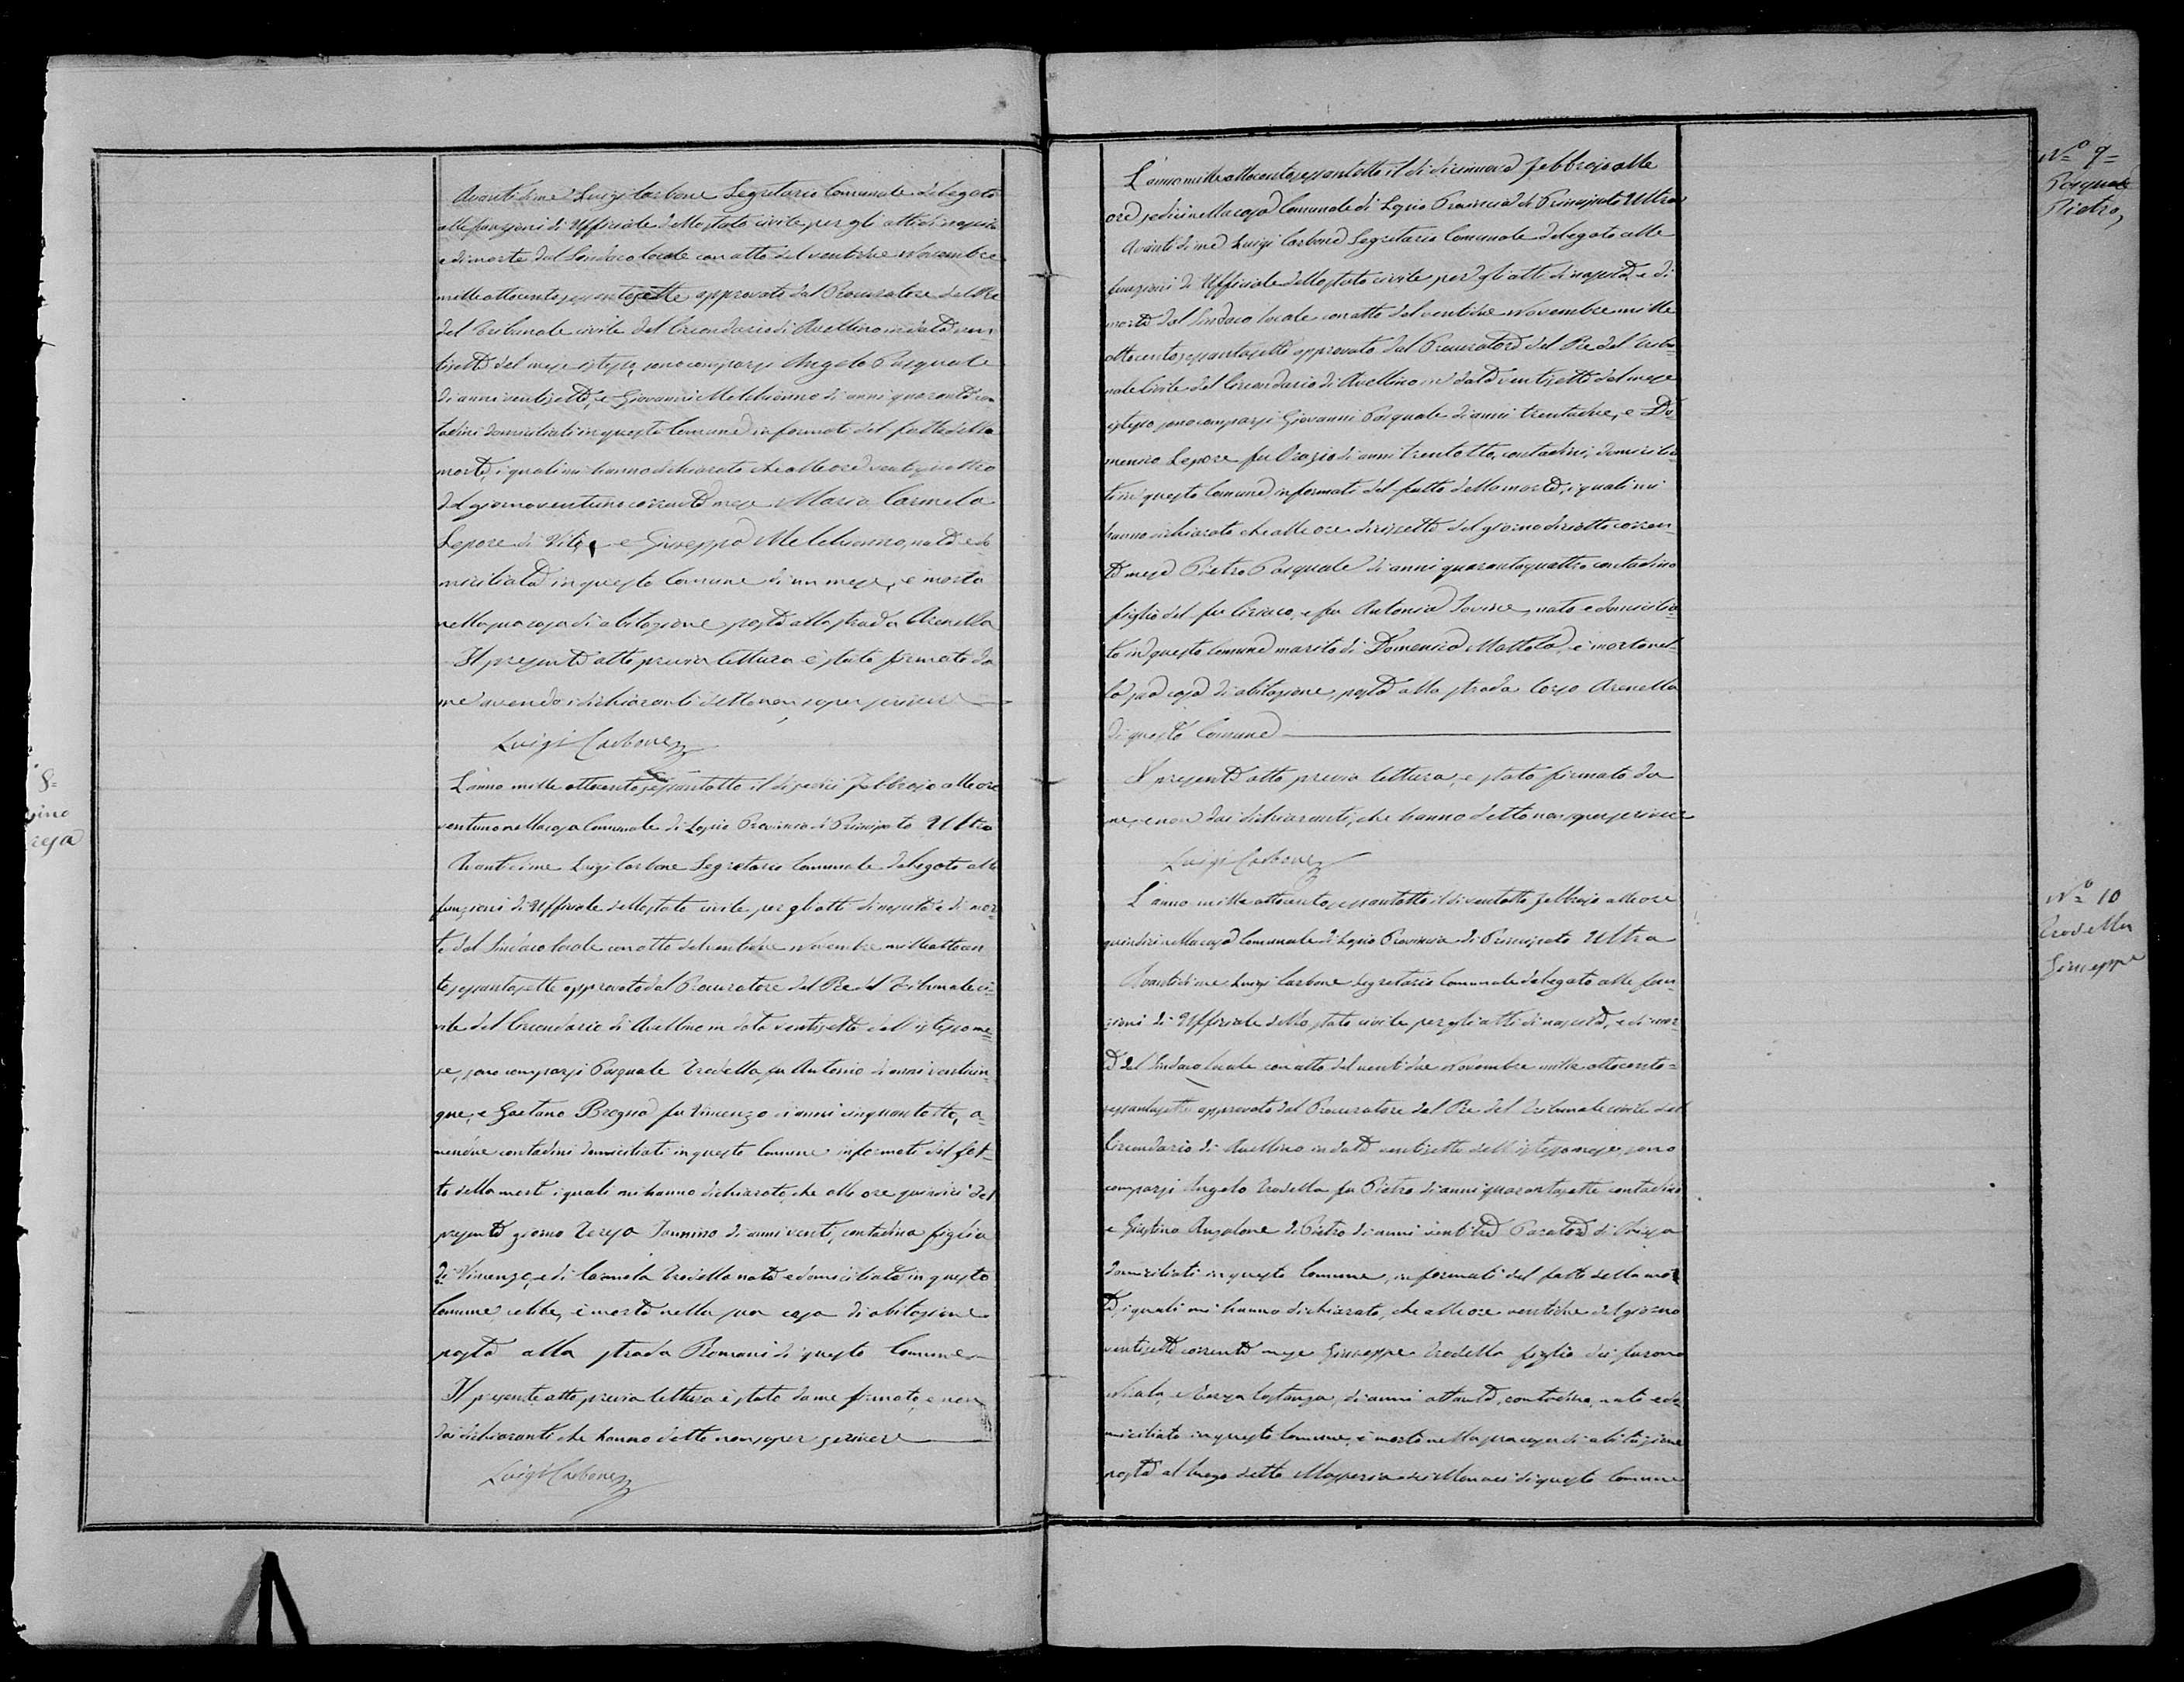 Avanti di me Luigi Carbone Segretario Comunale delegato
alle funzioni di Uffiziale dello stato civile per gli atti di nascita
e di morte dal Sindaco locale con atto del ventidue Novembre
mille ottocento sessantasette approvato dal Procuratore del Re
del Tribunale civile del Circondario di Avellino in data ven
tisette del mese istesso, sono comparsi Angelo Pasquale
di anni ventisette, e Giovanni Melchionno di anni quaranta con
tadini domiciliati in questo Comune informati del fatto della
morte, i quali mi hanno dichiarato che alle ore ventiquattro
del giorno ventuno corrente mese Maria Carmela
Lepore di Vito e Giuseppa Melchionno, nata e do
miciliata in questo Comune di un mese, è morta
nella sua casa di abitazione posta alla strada Arenella
Il presente atto previa lettura è stato firmato da
me avendo i dichiaranti detto non saper scrivere
Luigi Carbone
L'anno mille ottocento sessantotto il dì sedici Febbrajo alle ore
ventuno nella casa Comunale di Lapio Provincia di Principato Ultra
Avanti di me Luigi Carbone Segretario Comunale delegato alle
funzioni di Uffiziale dello stato civile per gli atti di nascita e di mor
te dal Sindaco locale con atto del ventidue Novembre mille ottocen
to sessantasette approvato dal Procuratore del Re del Tribunale ci=
vile del Circondario di Avellino in data ventisette dell'istesso me=
se, sono comparsi Pasquale Trodella fu Antonio di anni venticin=
que, e Gaetano Brogna fu Vincenzo di anni cinquantotto, a=
mendue contadini domiciliati in questo Comune informati del fat=
to della morte i quali mi hanno dichiarato che alle ore quindici del
presente giorno Teresa Iannino di anni venti, contadina figlia
di Vincenzo, e di Carmela Trodella nata e domiciliata in questo
Comune, celibe, è morta nella sua casa di abitazione
posta alla strada Romani di questo Comune
Il presente atto previa lettura è stato da me firmato, e non
dai dichiaranti che hanno detto non saper scrivere
Luigi Carbone
8=
nino
resa
L'anno mille ottocento sessantotto il dì diciannove Febbrajo alle
ore sedici nella casa Comunale di Lapio Provincia di Principato Ultra
Avanti di me Luigi Carbone Segretario Comunale delegato alle
funzioni di Uffiziale dello stato civile per gli atti di nascita, e di
morte dal Sindaco locale con atto del ventidue Novembre mille
ottocento sessantasette approvato dal Procuratore del Re del Tribu=
nale Civile del Circondario di Avellino in data ventisette del mese
istesso sono comparsi Giovanni Pasquale di anni trentadue, e Do
menico Lepore fu Orazio di anni trentotto, contadini, domicilia=
ti in questo Comune informati del fatto della morte, i quali mi
hanno dichiarato che alle ore diciasette del giorno diciotto corren=
te mese Pietro Pasquale di anni quarantaquattro contadino
figlio del fu Ciriaco, e fu Antonia Iovine, nato e domicilia=
to in questo Comune marito di Domenica Mottola, è morto nel=
la sua casa di abitazione, posta alla strada Corso Arenella
di questo Comune
Il presente atto previa lettura, è stato firmato da
me, e non dai dichiaranti, che hanno detto non saper scrivere
Luigi Carbone
L'anno mille ottocento sessantotto il dì ventotto Febbrajo alle ore
quindici nella casa Comunale di Lapio Provincia di Principato Ultra
Avanti di me Luigi Carbone Segretario Comunale delegato alle fun=
zioni di Uffiziale dello stato civile per gli atti di nascita, e di mor=
te dal Sindaco locale con atto del venti due Novembre mille ottocento=
sessantasette approvato dal Procuratore del Re del Tribunale civile del
Circondario di Avellino in data ventisette dell'istesso mese, sono
comparsi Angelo Trodella fu Pietro di anni quarantasette contadino
e Giustino Anzalone di Pietro di anni ventitre di Chiesa
domiciliati in questo Comune, informati del fatto della mor
te, i quali mi hanno dichiarato, che alle ore ventidue del giorno
ventisette corrente mese Giuseppe Trodella figlio dei furono
Nicola, e Costanza, di anni ottanta, contadino, nato e do
miciliato in questo Comune, è morto nella sua casa di abitazione
posta al luogo detto Masseria dei Monaci di questo Comune
Nº 9=
Pasquale
Pietro,
Nº 10
Trodella
Giuseppe